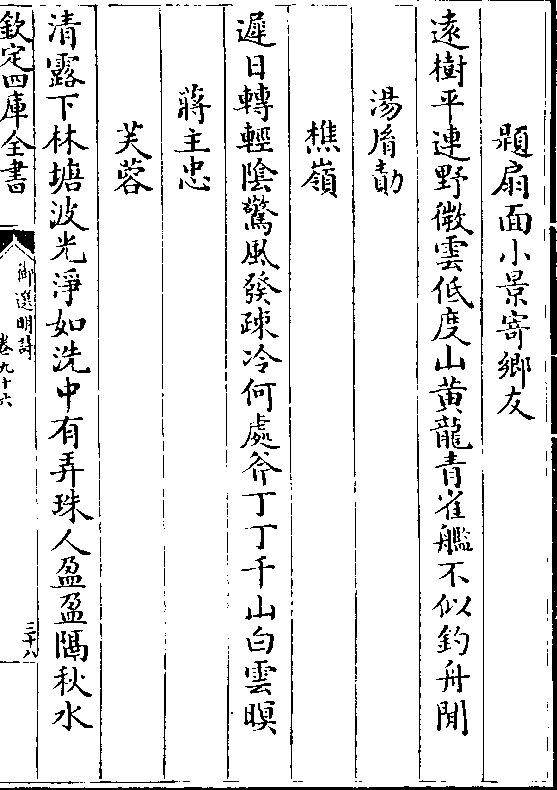 題扇面小景寄鄉友
遠樹平連野微雲低度山黄龍青雀艦不似釣舟閒
湯𦙍勣
樵嶺
遲日轉輕陰驚風發疎冷何處斧丁丁千山白雲暝
蔣主忠
芙蓉
清露下林塘波光淨如洗中有弄珠人盈盈隔秋水
欽定四庫全書
御選明詩
卷九十六
三十八